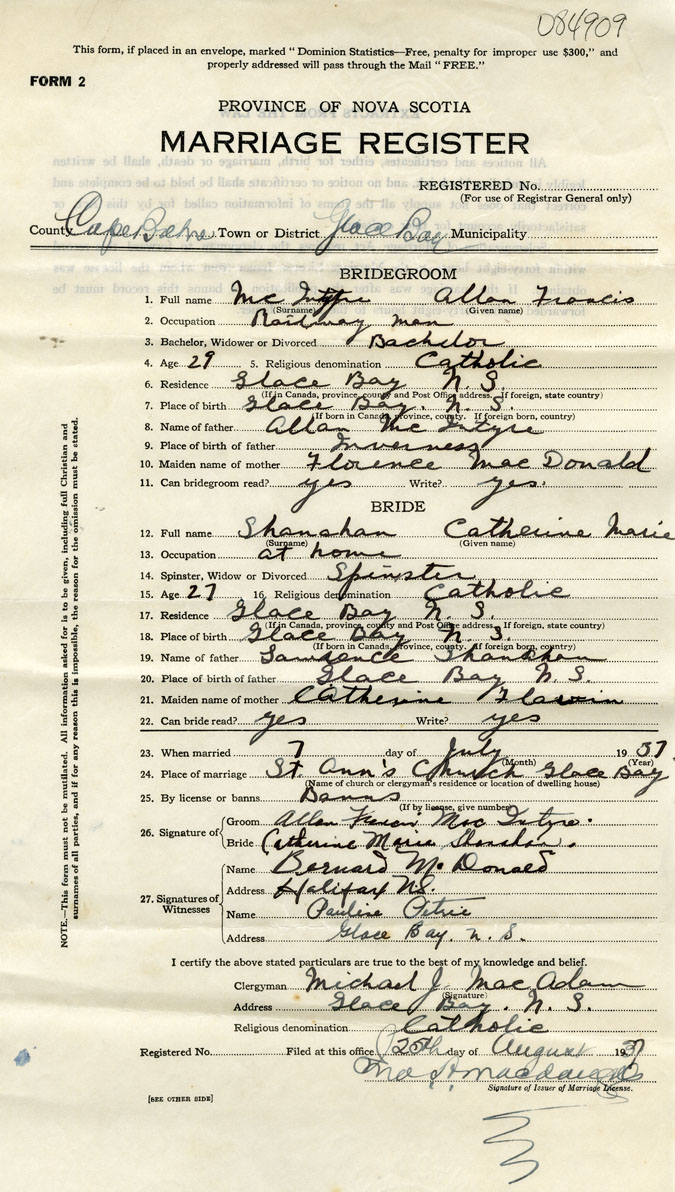 084909
This form, if placed in an envelope, marked "Dominion Statistics—Free, penalty for improper use $300," and
properly addressed will pass through the Mail "FREE."
FORM 2
PROVINCE OF NOVA SCOTIA
MARRIAGE REGISTER
REGISTERED No.
(For use of Registrar General only)
County Cape Breton Town or District Glace Bay Municipality
BRIDEGROOM
1. Full name Mc Intyre Allan Francis
(Surname) (Given name)
2. Occupation Railway man
3. Bachelor, Widower or Divorced Bachelor
4. Age 29 5. Religious denomination Catholic
6. Residence Glace Bay N. S.
(If in Canada, province, county and Post Office address. If foreign, state country)
7. Place of birth Glace Bay. N. S.
(If born in Canada, province, county. If foreign born, country)
8. Name of father Allan Mc Intyre
9. Place of birth of father Inverness
10. Maiden name of mother Florence Mac Donald
11. Can bridegroom read? yes Write? yes.
BRIDE
12. Full name Shanahan Catherine Marie
(Surname) (Given name)
13. Occupation at home
14. Spinster, Widow or Divorced Spinster
15. Age 27 16. Religious denomination Catholic
17. Residence Glace Bay N. S.
(If in Canada, province, county and Post Office address. If foreign, state country)
18. Place of birth Glace Bay N. S.
(If born in Canada, province, county. If foreign born, country)
19. Name of father Lawrence Shanahan
20. Place of birth of father Glace Bay N. S.
21. Maiden name of mother Catherine Flavin
22. Can bride read? yes Write? yes
23. When married 7 day of July 1937
(Month) (Year)
24. Place of marriage St. Ann's Church Glace Bay
(Name of church or clergyman's residence or location of dwelling house)
25. By license or banns Banns
(If by license, give number)
26. Signature of
Groom Allan Francis Mac Intyre.
Bride Catherine Marie Shanahan.
27. Signatures of Witnesses
Name Bernard McDonald
Address Halifax N.S.
Name Pauline Petrie
Address Glace Bay. N. S.
I certify the above stated particulars are true to the best of my knowledge and belief.
Clergyman Michael J. Mac Adam
(Signature)
Address Glace Bay. N. S.
Religious denomination Catholic
Registered No. Filed at this office 25th day of August 1937
Signature of Issuer of Marriage License.
[SEE OTHER SIDE]
NOTE.—This form must not be mutilated. All information asked for is to be given, including full Christian and
surnames of all parties, and if for any reason this is impossible, the reason for the omission must be stated.